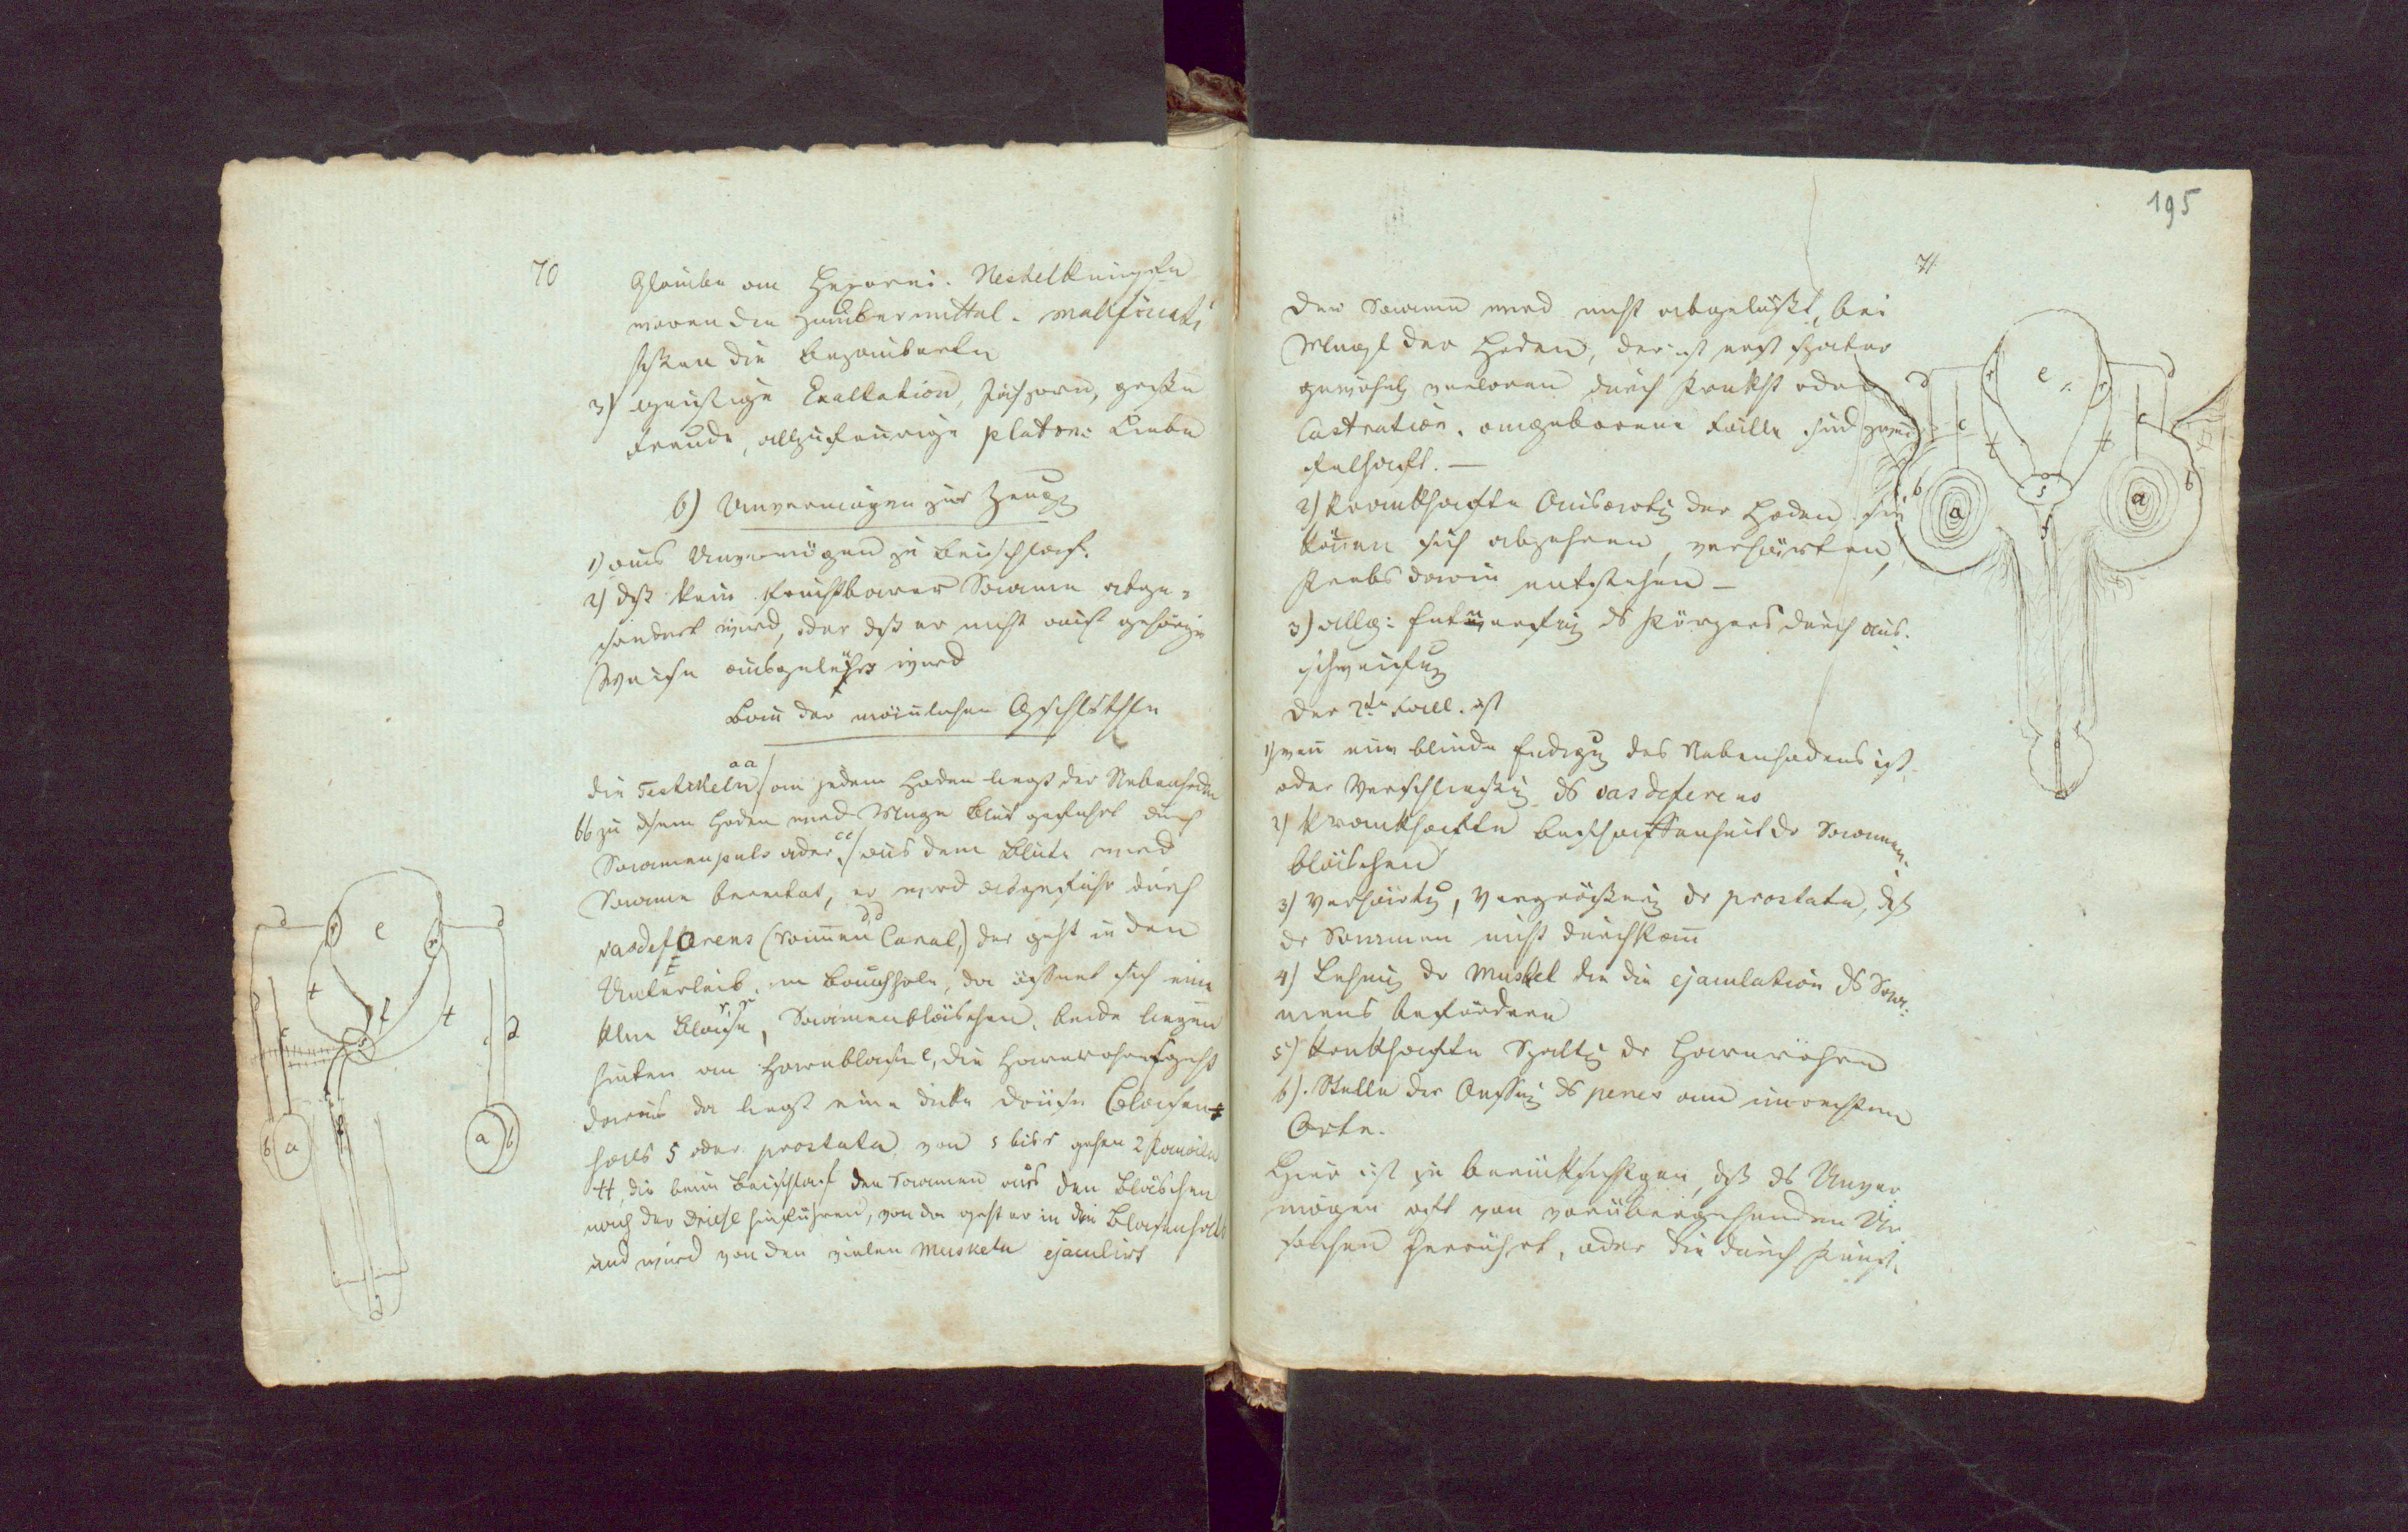 70
Glaube an Hexerei. Nestelknüpfen
waren die Zaubermittel. malficiati
hießen die bezauberten
3) geistige Exaltation, Jähzorn, große
Freude, allzufeurige platon: Liebe
b) Unvermögen zur Zeugg
1) aus Unvermögen zu Beischlaf.
2) dß kein fruchtbarer Saamen abge=
sondert wird, oder dß er nicht auf gehörige
Weise ausgeleert wird
Bau der mäñlichen Gschlthle
aa
die Testikeln / an jedem Hoden liegt der Nebenhoden
bb zu dsem Hoden wird Menge Blut geführt durch
cc
Saamenpuls ader / aus dem Blute wird
Saame bereitet, er wird abgeführt durch
d,d
vasdeferens (Saamen Canal,) der geht in den
Unterleib. in Bauchhöle, da öffnet sich eine
r,r
kleine Blase, Saamenbläschen. beide liegen
hinten an Harnblase e, die Harnröhre f geht
daraus da liegt eine dicke Drüse Blasen=
hals s oder prostata von s bis r gehen 2 Kanäle
tt, die beim Beischlaf den Saamen aus den Bläschen
nach der Drüse hinführen, von da geht er in den Blasenhals
und wird von den vielen Muskeln ejaculirt
d
e
d
r
r
t
f
t
c
s
c
d
b
a
a
b
195
71
der Saame wird nicht abgesondert, bei
Mangl der Hoden, der ist erst später
gewöhnl verloren durch Krankht oder
Castration. angeborene Fälle sind zwei
felhaft. —
2) Krankhafte Ausartg der Hoden sie
köñen sich abzehren, verhärten,
Krebs darin entstehen —
3) allg: Entnervung ds Körpers durch aus.
schweifug
der 2te Fall. ist
1) weñ eine blinde Endigug des Nebenhodens ist
oder Verschließug ds vas deferens
2) Krankhafte Beschaffenheit dr Saamen.
bläschen
3) Verhärtg, Vergrößerug dr prostata, dß
dr Saamen nicht durchkañ
4) Lähmug dr Muskel die die ejaculation ds Saa.
mens befördern
5) krankhafte Spaltg dr Harnröhre
6). Stelle der Oeffng ds penes am unrechten
Orte.
Hier ist zu berücksichtigen, dß ds Unver
mögen oft von vorübergehenden Ur
sachen herrührt, oder die durch Kunst.
d
r
e
r
d
c
t
t
c
b
a
s
f
a
b